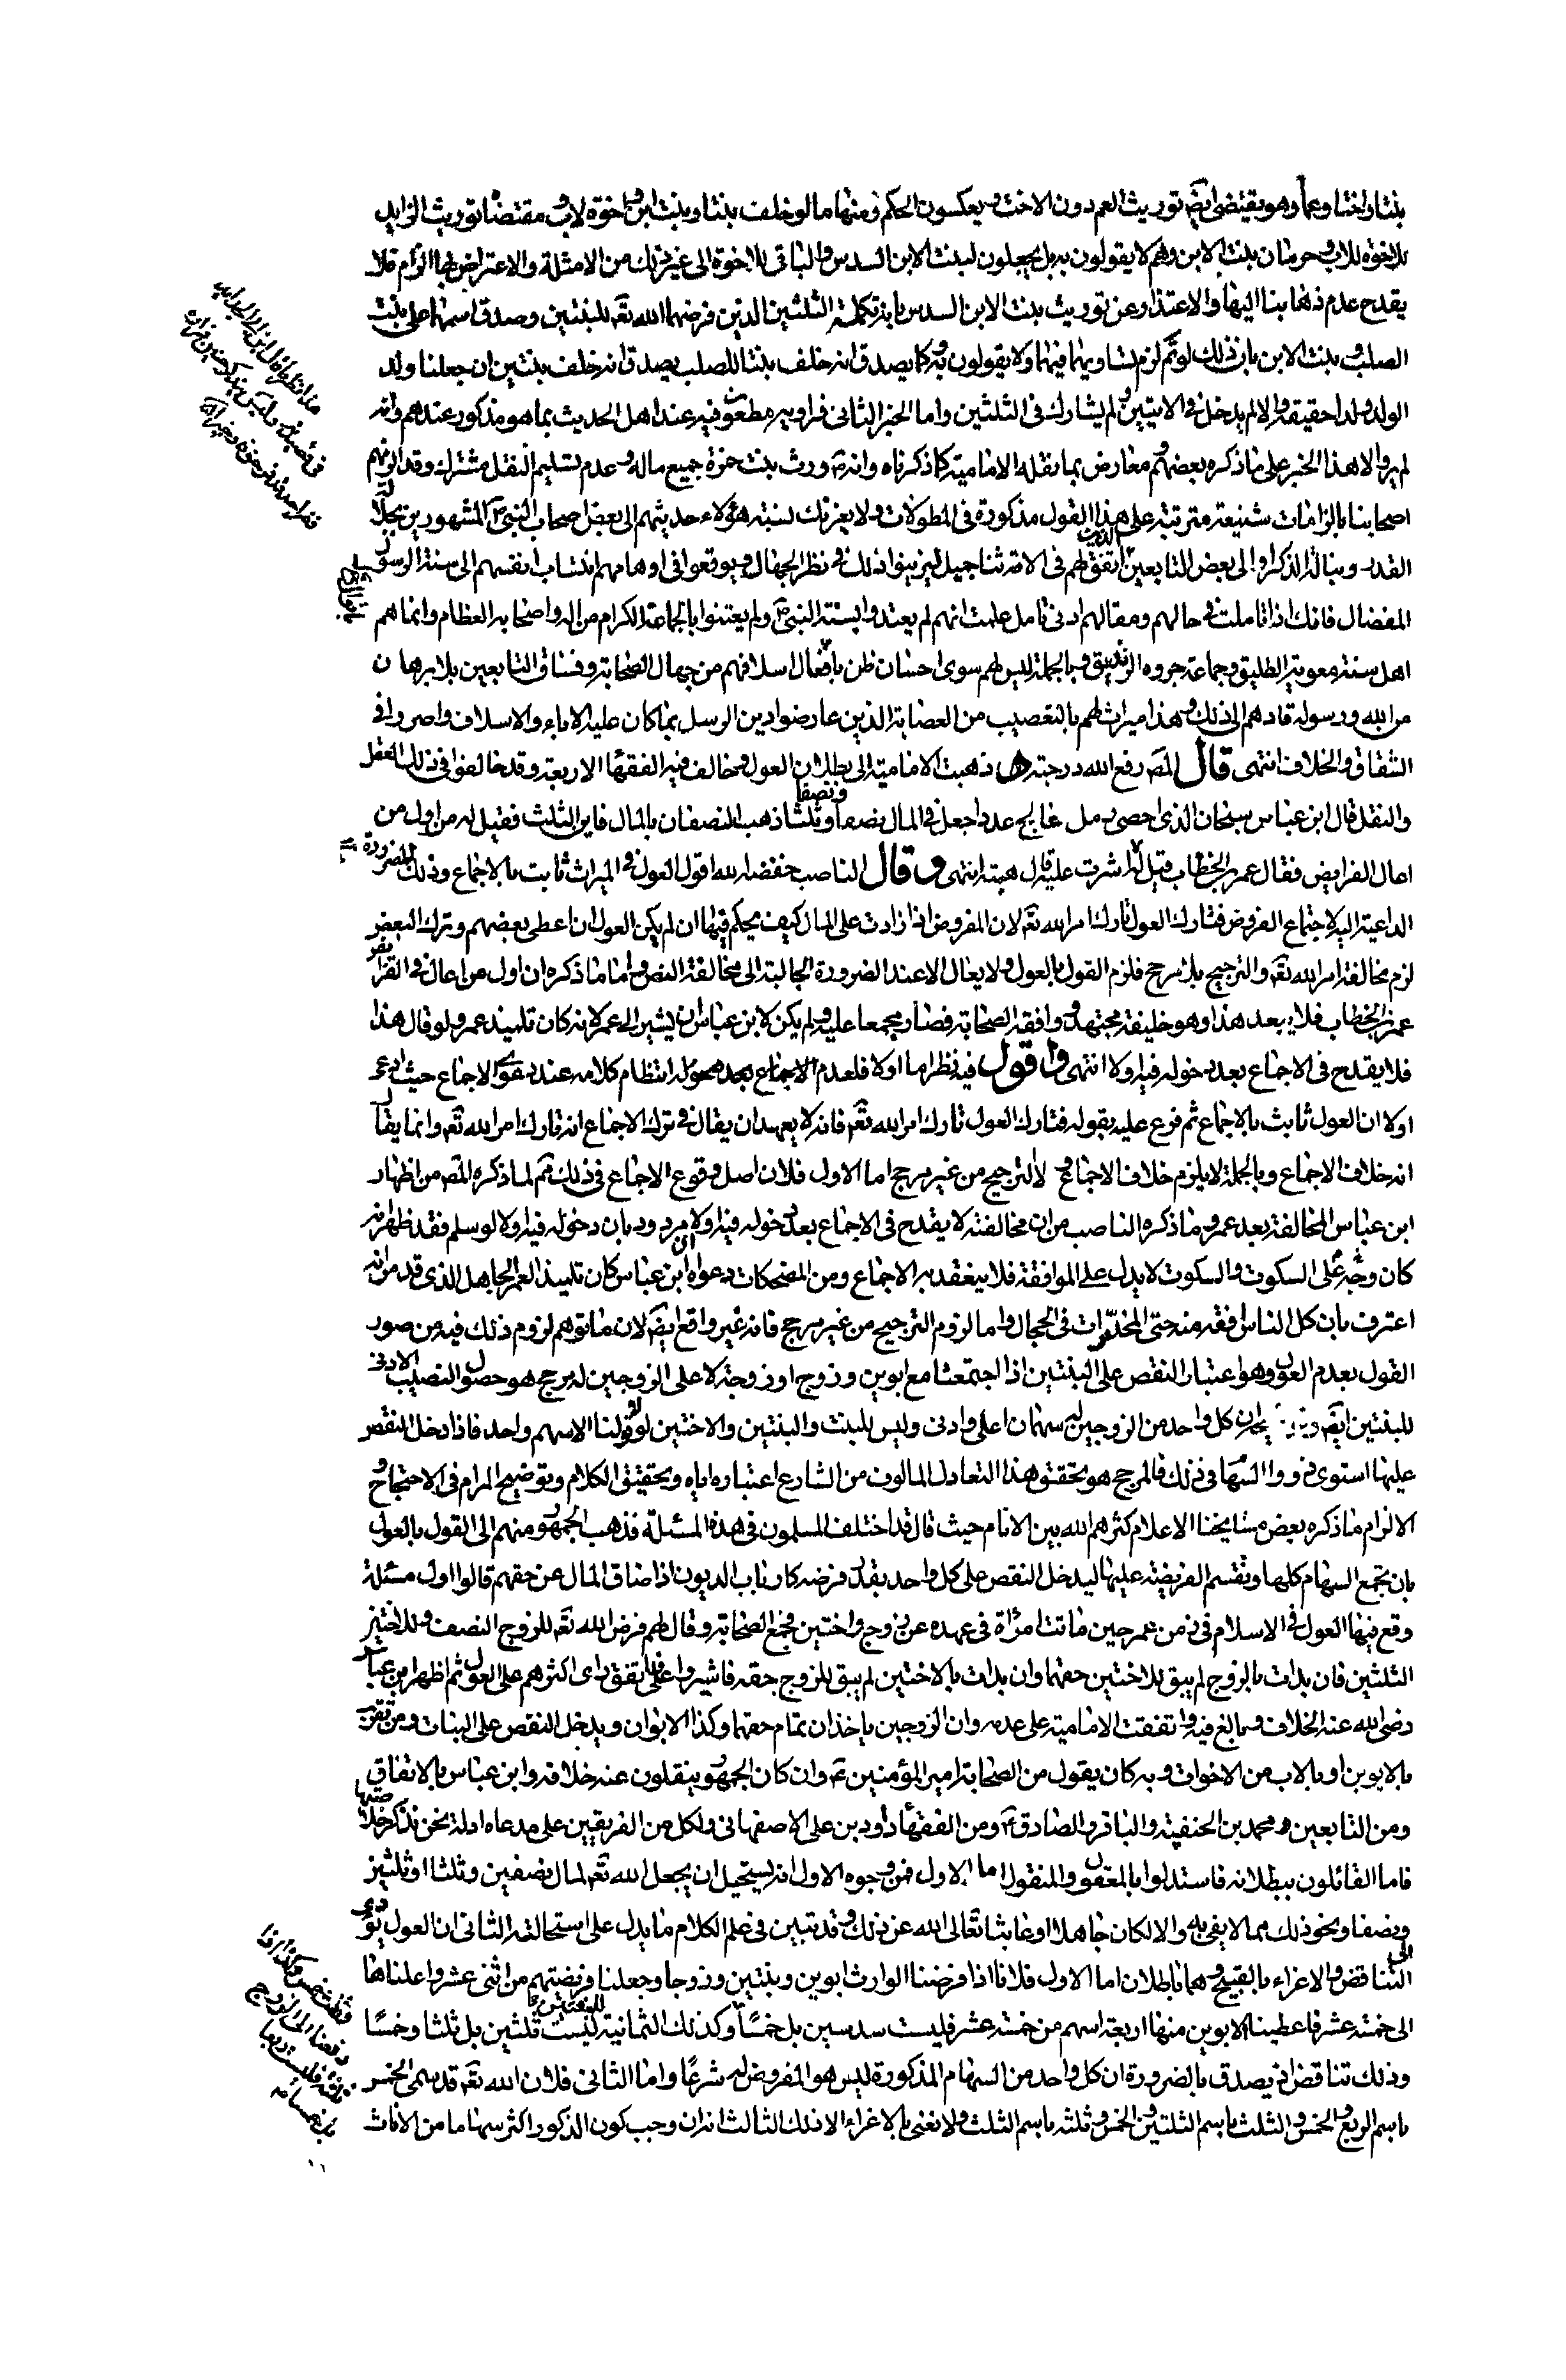 بنتا واختا وعما وهو يقتضى ايضً توريث العم دون الاخت ويعكسون الحكم ومنها ما لو خلف بنتا وبنت ابن واخوة لاب مقتضاه توريث الزايد
للاخوة للاب وحرمان بنت الابن وهم لا يقولون به بل يجعلون لبنت الابن السدس والباقى للاخوة الى غير ذلك من الامثلة والاعتراض بها الزام فلا
يقدح عدم ذهابنا اليها والاعتذار عن توريث بنت الابن السدس بانه تكملة الثلثين الذين فرضهما الله تعَ للبنتين وصدق اسمها على بنت
الصلب وبنت الابن بان ذلك لو تم لزم تساويهما فيهما ولا يقولون به كما يصدق انه خلف بنتا للصلب يصدق انه خلف بنتين ان جعلنا ولد
الولد ولدا حقيقة والا لم يدخل فى الايتين ولم يشارك فى الثلثين واما الخبر الثانى فراويه مطعون فيه عند اهل الحديث بما هو مذكور عندهم وانه
لم يرو الا هذا الخبر على ما ذكره بعضهم ثم معارض بما نقله الامامية كما ذكرناه وانه صَ ورث بنت حمزة جميع ماله وعدم تسليم النقل مشترك وقد الزمهم
اصحابنا بالزامات شنيعة مترتبة على هذا القول مذكورة فى المطولات ولا يغرنك نسبة هؤلاء حديثهم الى بعض اصحاب النبى صَ المشهورين بجلالة
القدر ونبالة الذكر او الى بعض التابعين الذين اتفق لهم فى الامة ثنا جميل ليزينوا ذلك فى نظر الجهال ويوقعوا فى اوهامهم انتساب انفسهم الى سنة الرسول
المفضال فانك اذا تاملت فى حالهم ومقالهم ادنى تامل علمت انهم لم يعتدوا بسنة النبى صَ ولم يعتنوا بالجماعة الكرام من اله واصحابه العظام وانما هم
اهل سنة معوية الطليق وجماعة جروه الزنديق وبالجملة ليس لهم سوى احسان ظن بافعال اسلافهم من جهال الصحابة وفساق التابعين بلا برهان
من الله ورسوله قادهم الى ذلك وهذا ميراث لهم بالتعصيب من العصابة الذين عارضوا دين الرسل بما كان عليه الاباء والاسلاف واصروا فى
الشقاق والخلاف انتهى قال المصَ رفع الله درجته ذهبت الامامية الى بطلان العول وخالف فيه الفقها الاربعة وقد خالفوا فى ذلك العقل
والنقل قال ابن عباس سبحان الذى احصى رمل عالج عددا جعل فى المال نصفا ونصفا وثلثا ذهب النصفان بالمال فاين الثلث فقيل له من اول من
اعال الفرايض فقال عمر بن الخطاب قيل له لا اشرت عليه قال هبته انتهى وقال الناصب خفضه الله اقول العول فى الميراث ثابت بالاجماع وذلك للضرورة
الداعية اليه لاجتماع الفروض فتارك العول تارك امر الله تعَ لان الفروض اذا زادت على المال كيف يحكم فيها ان لم يكن العول ان اعطى بعضهم وترك البعض
لزم مخالفة امر الله تعَ والترجيح بلا مرجح فلزم القول بالعول ولا يعال الا عند الضرورة الجالبة الى مخالفة النص واما ما ذكره ان اول من اعال فى الفرايض
عمر بن الخطاب فلا يبعد هذا وهو خليفة مجتهد وافقه الصحابة فصار مجمعا عليه ولم يكن لابن عباس ان يشير الى عمر لانه كان تلميذ عمر ولو قال هذا
فلا يقدح فى الاجماع بعد دخوله فيه اولا انتهى واقول فيه نظر اما اولا فلعدم انتظام كلامه عند دعوى الاجماع حيث ادعى
اولا ان العول ثابت بالاجماع ثم فرع عليه بقوله فتارك العول تارك امر الله تعَ فانه لا يعهد ان يقال فى ترك الاجماع انه تارك امر الله تعَ وانما يقال
انه خلاف الاجماع وبالجملة لا يلزم خلاف الاجماع ولا الترجيح من غير مرجح اما الاول فلان اصل وقوع الاجماع فى ذلك ثم لما ذكره المصَ من اظهار
ابن عباس المخالفة بعد عمر وما ذكره الناصب من ان مخالفته لا يقدح فى الاجماع بعد دخوله فيه اولا مردود بان دخوله فيه اولا لو سلم فقد ظهر انه
كان وجه على السكوت والسكوت لا يدل على الموافقة فلا ينعقد به الاجماع ومن المضحكات دعواه ان ابن عباس كان تلميذا لعمر الجاهل الذى قد مر انه
اعترف بان كل الناس افقه منه حتى المخدرات فى الحجال واما لزوم الترجيح من غير مرجح فانه غير واقع ايضً لان ما توهم لزوم ذلك فيه من صور
القول بعدم العول وهو اعتبار النقص على البنتين اذا اجتمعتا مع ابوين وزوج او زوجة لا على الزوجين له مرجح هو حصول النصيب الادنى
للبنتين ايضً كل واحد من الزوجين له سهمان اعلى وادنى وليس للبنت والبنتين والاختين لولا قولنا الا سهم واحد فاذا دخل النقص
عليها استوى ذووا السهام فى ذلك فالمرجح هو تحقق هذا التعادل المالوف من الشارع اعتباره اياه وتحقيق الكلام وتوضيح المرام فى الاحتجاج
والالزام ما ذكره بعض مشايخنا الاعلام كثرهم الله بين الانام حيث قال قد اختلف المسلمون فى هذه المسئلة فذهب الجمهور منهم الى القول بالعول
بان تجمع السهام كلها وتقسم الفريضة عليها ليدخل النقص على كل واحد بقدر فرضه كارباب الديون اذا ضاق المال عن حقهم قالوا اول مسئلة
وقع فيها العول فى الاسلام فى زمن عمر حين ماتت امرأة فى عهده عن زوج واختين فجمع الصحابة وقال لهم فرض الله تعَ للزوج النصف وللاختين
الثلثين فان بدات بالزوج لم يبق للاختين حقهما وان بدات بالاختين لم يبق للزوج حقه فاشيروا على فاتفق راى اكثرهم على العول ثم اظهر ابن عباس
رضى الله عنه الخلاف وبالغ فيه واتفقت الامامية على عدمه وان الزوجين ياخذان تمام حقهما وكذا الابوان ويدخل النقص على البنات ومن تقرب
بالابوين او بالاب من الاخوات وبه كان يقول من الصحابة امير المؤمنين عَ وان كان الجمهور ينقلون عنه خلافه وابن عباس بالاتفاق
ومن التابعين محمد بن الحنفية والباقر والصادق عَ ومن الفقهاء داود بن على الاصفهانى ولكل من الفريقين على مدعاه ادلة نحن نذكر خلاصتها
فاما القائلون ببطلانه فاستدلوا بالمعقول والمنقول اما الاول فمن وجوه الاول انه يستحيل ان يجعل الله تعَ لمال نصفين وثلثا او ثلثين
ونصفا ونحو ذلك مما لا يفى به والا لكان جاهلا او عابثا تعالى الله عن ذلك وقد تبين فى علم الكلام ما يدل على استحالته الثانى ان العول يؤدى
الى التناقض والاغراء بالقبيح وهما باطلان اما الاول فلانا اذا فرضنا الوارث ابوين وبنتين وزوجا وجعلنا فريضتهم من اثنى عشر واعلناها
الى خمسة عشر فاعطينا الابوين منها اربعة اسهم من خمسة عشر فليست سدسين بل خمسًا وكذلك الثمانية للبنتين ليست ثلثين بل ثلثا وخمسًا
وذلك تناقض اذ يصدق بالضرورة ان كل واحد من السهام المذكورة ليس هو المفروض له شرعًا واما الثانى فلان الله تعَ قد سمى الخمس
باسم الربع والخمس والثلث باسم الثلثين والخمس وثلثه باسم الثلث ولا نعنى بالاغراء الا ذلك الثالث انه ان وجب كون الذكور اكثر سهاما من الاناث